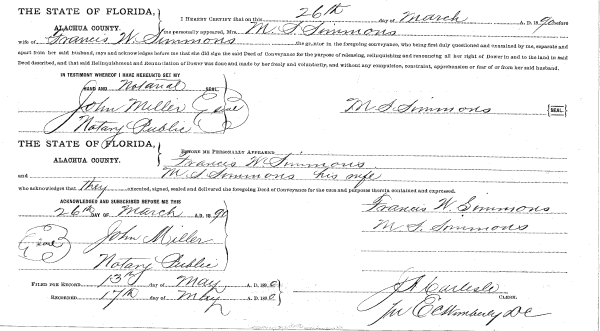 THE STATE OF FLORIDA,
ALACHUA COUNTY.
I HEREBY CERTIFY that on this 26th day of March A. D. 1890 before
me personally appeared, Mrs. M. S. Simmons
wife of Francis W. Simmons the grantor in the foregoing conveyance, who being first duly questioned and examined by me, separate and
apart from her said husband, says and acknowledges before me that she did sign the said Deed of Conveyance for the purpose of releasing, relinquishing and renouncing all her right of Dower in and to the land in said
Deed described, and that said Relinquishment and Renunciation of Dower was done and made by her freely and voluntarily, and without any compulsion, constraint, apprehension or fear of or from her said husband.
IN TESTIMONY WHEREOF I HAVE HEREUNTO SET MY
HAND AND Notarial SEAL.
John Miller Seal
Notary Public
M S Simmons SEAL
THE STATE OF FLORIDA,
ALACHUA COUNTY.
BEFORE ME PERSONALLY APPEARED
Francis W. Simmons
and M. S. Simmons his wife
who acknowledges that they executed, signed, sealed and delivered the foregoing Deed of Conveyance for the uses and purpose therein contained and expressed.
ACKNOWLEDGED AND SUBSCRIBED BEFORE ME THIS
26th DAY OF March A. D. 1890
Seal
John Miller
Notary Public
Francis W. Simmons
M S Simmons
FILED FOR RECORD 13th day of May A. D. 1890
RECORDED 17th day of May A. D. 1890
J A Carlisle
CLERK.
DC